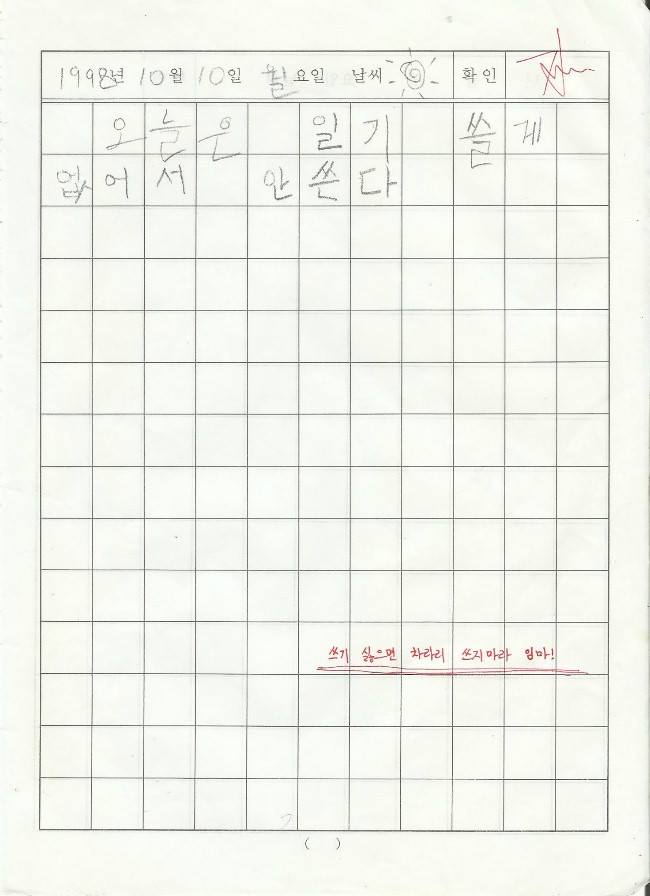 1998년 10월 10일 월요일 날씨 확인
오늘은 일기 쓸게
없어서 안쓴다
쓰기 싫으면 차라리 쓰지마라 임마!
( )